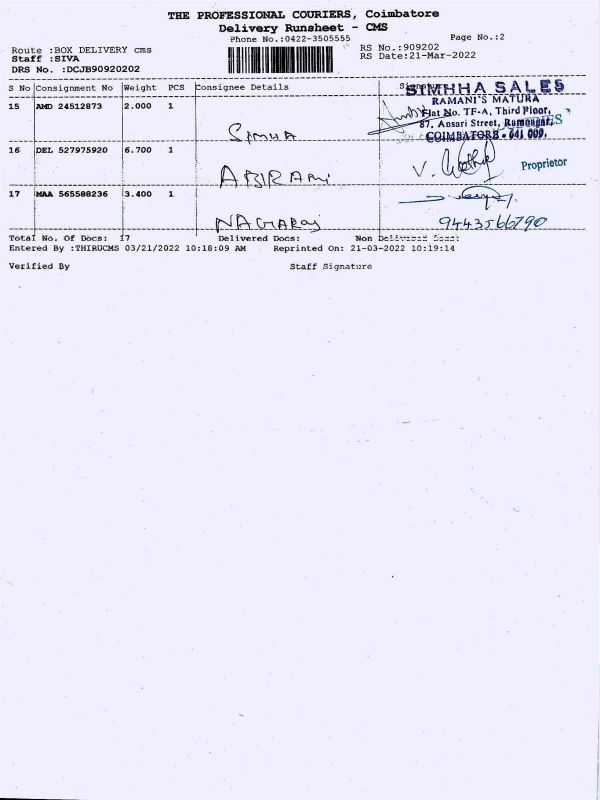 THE PROFESSIONAL COURIERS, Coimbatore
Delivery Runsheet - CMS
Phone No.:0422-3505555
Page No.:2
Route :BOX DELIVERY cms
Staff :SIVA
DRS No. :DCJB90920202
RS No.:909202
RS Date:21-Mar-2022
S No Consignment No Weight PCS Consignee Details
SIMHHA SALES
RAMANI'S MATURA
Flat No. TF-A, Third Floor,
87, Ansari Street, Ramnagar,
COIMBATORE - 641 009.
15 AMD 24512873 2.000 1
SIMHA
16 DEL 527975920 6.700 1
ABIRAMI
V.
Proprietor
17 MAA 565588236 3.400 1
NAGARAJ
9443566790
Total No. Of Docs: 17 Delivered Docs: Non Delivered Docs:
Entered By :THIRUCMS 03/21/2022 10:18:09 AM Reprinted On: 21-03-2022 10:19:14
Verified By Staff Signature